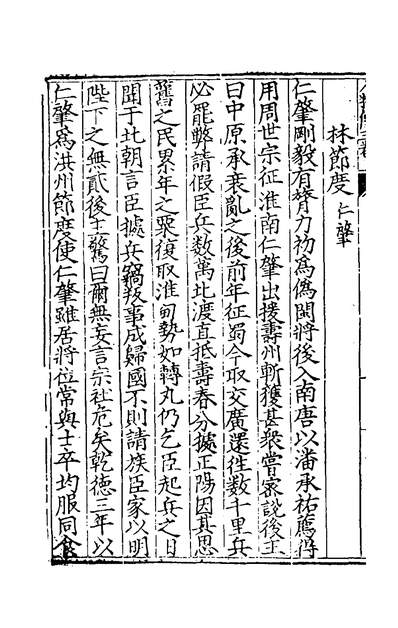 林節度 仁肇
仁肇剛毅有膂力初爲僞閩將後入南唐以潘承祐薦得
用周世宗征淮南仁肇出援壽州斬獲甚衆嘗密說後主
曰中原承衰亂之後前年征蜀今取交廣還徃數千里兵
必罷弊請假臣兵数萬北渡直抵壽春分據正陽因其思
舊之民累年之粟復取淮甸勢如轉丸仍乞臣起兵之日
聞于北朝言臣據兵竊叛事成歸國不則請族臣家以明
陛下之無貳後主驚曰爾無妄言宗社危矣乾徳三年以
仁肇爲洪州節度使仁肇雖居將位常與士卒均服同食